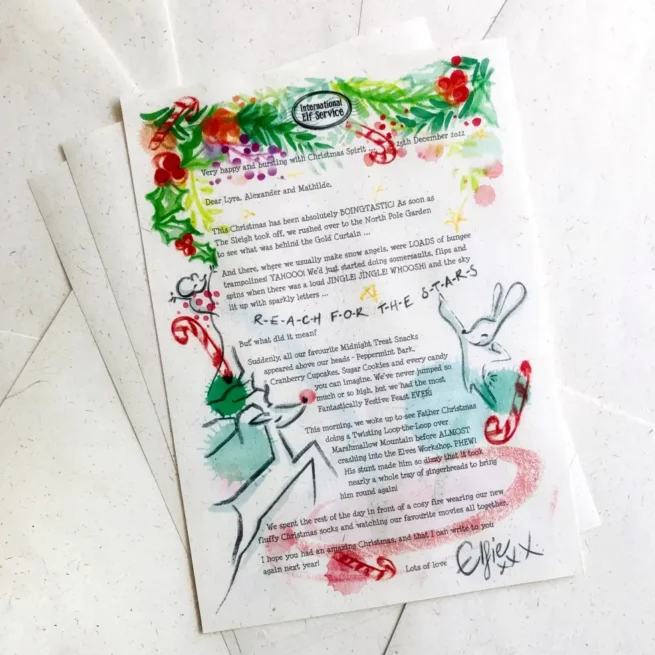 International
Elf Service
Very happy and bursting with Christmas Spirit ... 25th December 2022
Dear Lyra, Alexander and Mathilde,
This Christmas has been absolutely BOINGTASTIC! As soon as
The Sleigh took off, we rushed over to the North Pole Garden
to see what was behind the Gold Curtain ...
And there, where we usually make snow angels, were LOADS of bungee
trampolines! YAHOOO! We'd just started doing somersaults, flips and
spins when there was a loud JINGLE! JINGLE! WHOOSH! and the sky
lit up with sparkly letters ...
R-E-A-C-H F-O-R T-H-E S-T-A-R-S
But what did it mean?
Suddenly, all our favourite Midnight Treat Snacks
appeared above our heads - Peppermint Bark,
Cranberry Cupcakes, Sugar Cookies and every candy
you can imagine. We've never jumped so
much or so high, but we had the most
Fantastically Festive Feast EVER!
This morning, we woke up to see Father Christmas
doing a Twisting Loop-the-Loop over
Marshmallow Mountain before ALMOST
crashing into the Elves Workshop, PHEW!
His stunt made him so dizzy that it took
nearly a whole tray of gingerbreads to bring
him round again!
We spent the rest of the day in front of a cosy fire wearing our new
fluffy Christmas socks and watching our favourite movies all together.
I hope you had an amazing Christmas, and that I can write to you
again next year!
Lots of love
Effie xxx